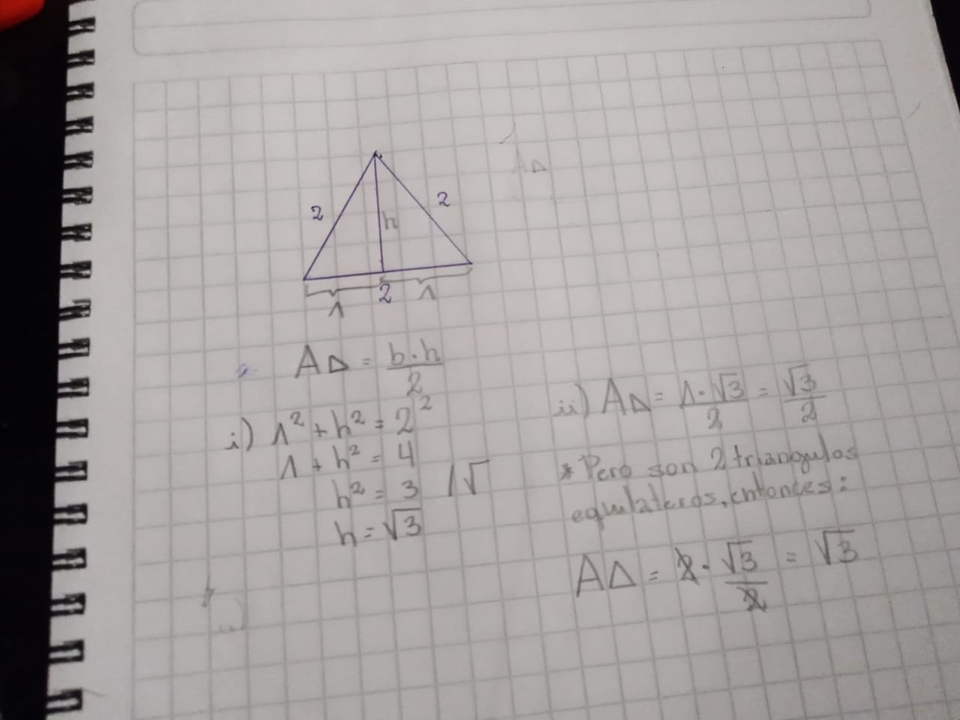 AΔ
2
2
h
1
2
1
AΔ = b·h/2
i) 1² + h² = 2²
1 + h² = 4
h² = 3 /√
h = √3
ii) AΔ = 1·√3/2 = √3/2
* Pero son 2 triangulos
equilateros, entonces:
AΔ = 2·√3/2 = √3